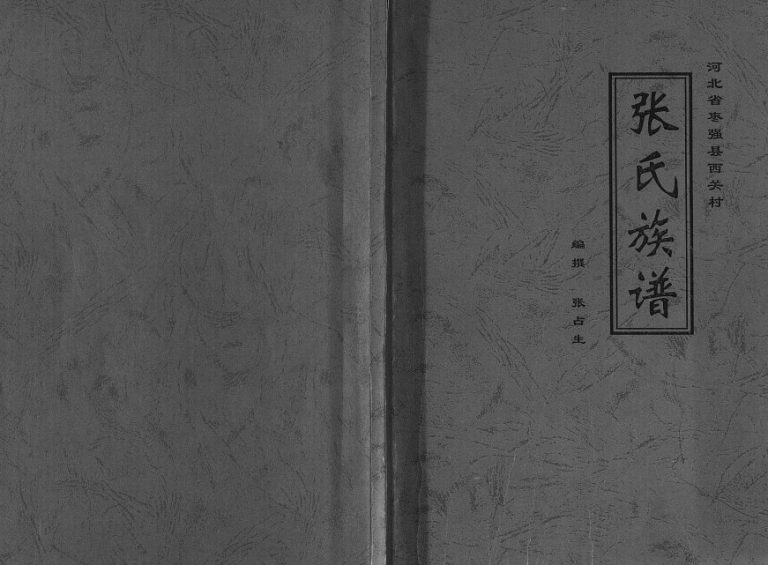 河北省枣强县西关村
张氏族谱
编撰 张占生